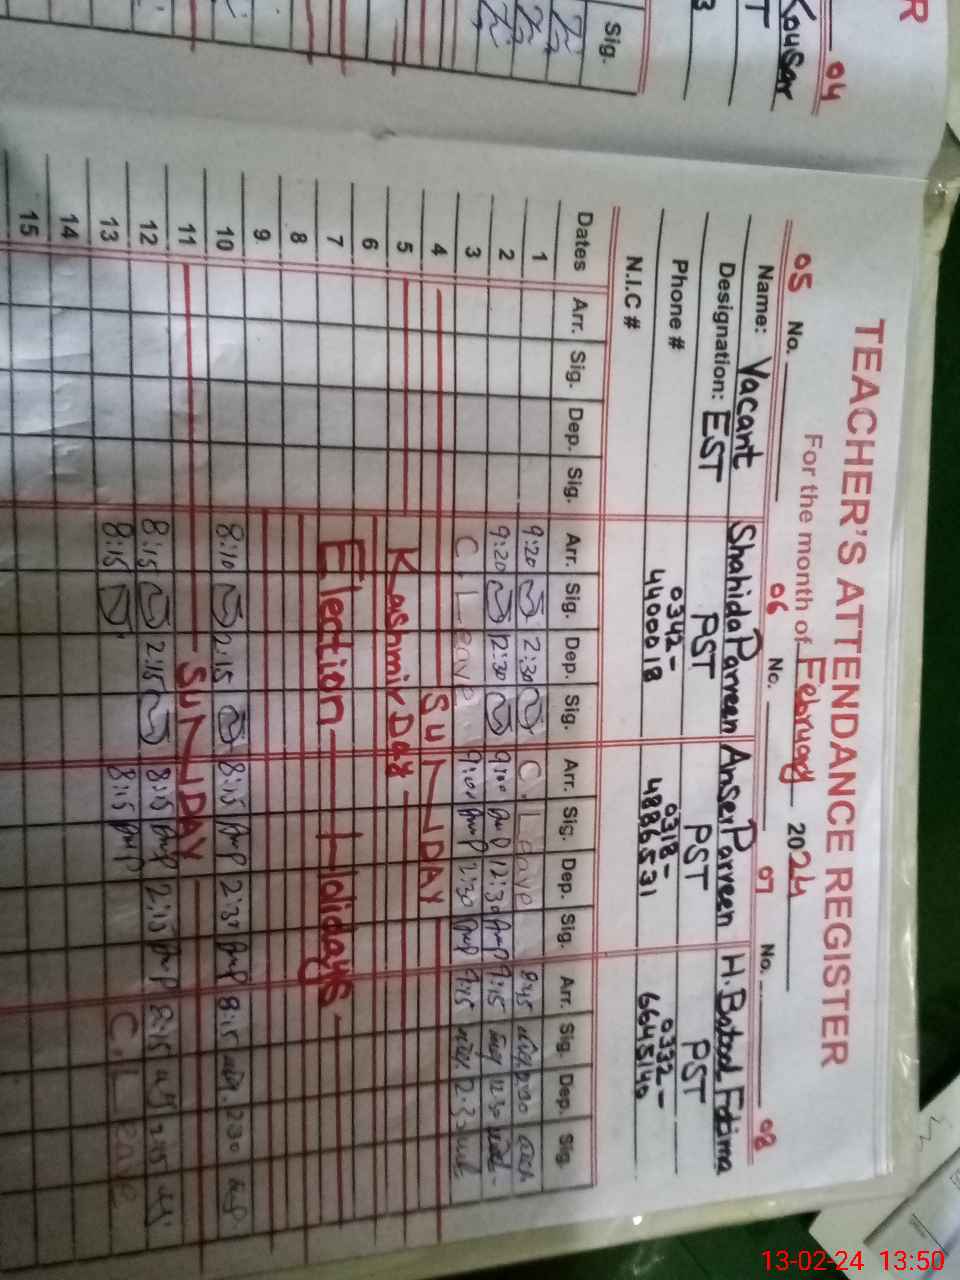 04
Kousar
Sig.
TEACHER'S ATTENDANCE REGISTER
For the month of February 2024
05 No. 06 No. 07 No. 08
Name: Vacant Shahida Parveen Anser Parveen H. Batool Fatima
Designation: EST PST PST PST
Phone # 0342- 0318- 0332-
4400018 4886531 6645140
N.I.C #
Dates Arr. Sig. Dep. Sig. Arr. Sig. Dep. Sig. Arr. Sig. Dep. Sig. Arr. Sig. Dep. Sig.
1 9:20 2:30 C. Leave 8:45 2:30
2 9:20 12:30 9:00 12:30 9:15 12:30
3 C. Leave 9:00 2:30 9:15 2:30
4 SUNDAY
5 Kashmir Day
6
7 Election Holidays
8
9
10 8:10 2:15 8:15 2:30 8:15 2:30
11 SUNDAY
12 8:15 2:15 8:15 2:15 8:15 2:15
13 8:15 8:15 C. Leave
14
15
13-02-24 13:50